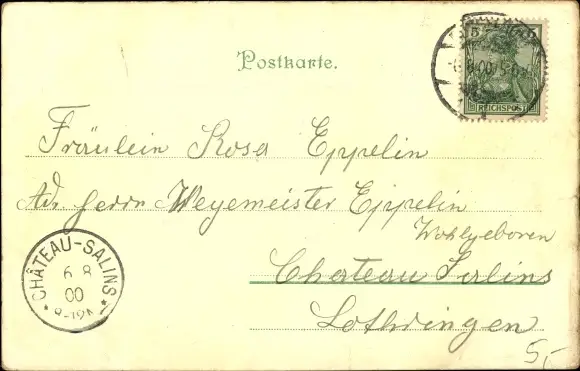 Postkarte.
5
REICHSPOST
Fräulein Rosa Eppelin
Adr. Herrn Wegemeister Eppelin
Wohlgeboren
Chateau Salins
Lothringen
CHÂTEAU-SALINS
6 8
00
8-12V
5,-